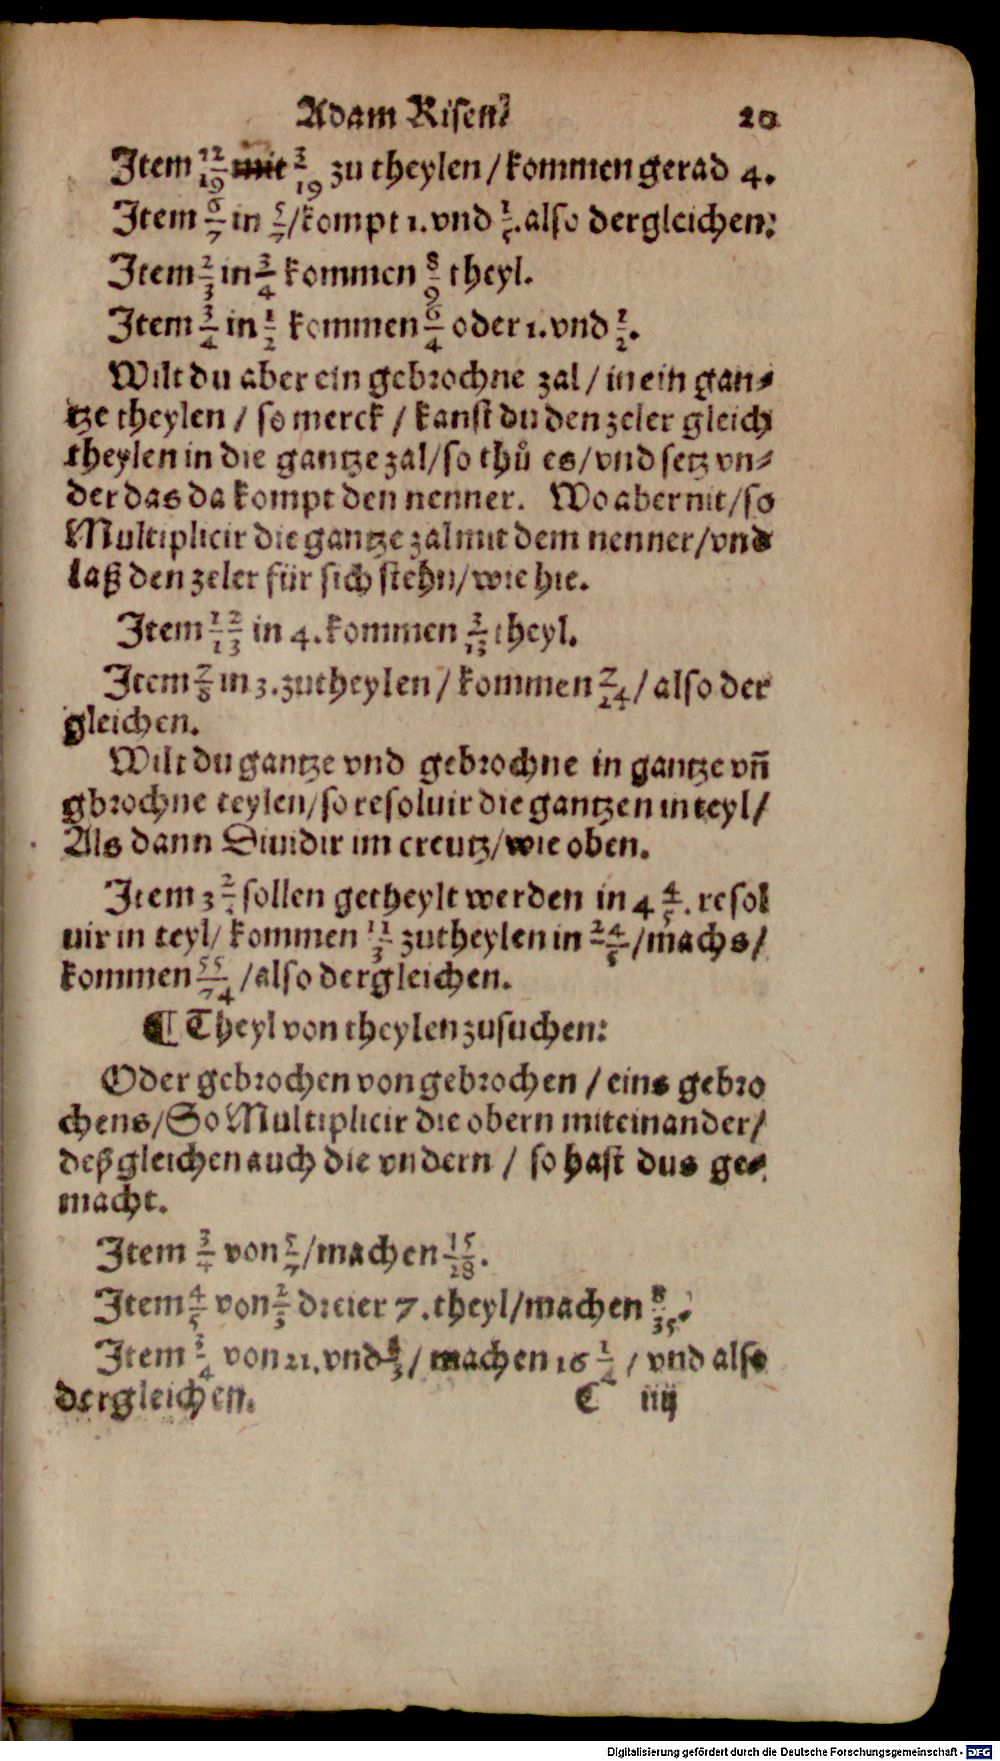 Adam Risen. 20
Item 12/19 mit 3/19 zu theylen / kommen gerad 4.
Item 6/7 in 5/7 / kompt 1. vnd 1/5. also dergleichen:
Item 2/3 in 3/4 kommen 8/9 theyl.
Item 3/4 in 1/2 kommen 6/4 oder 1. vnd 1/2.
Wilt du aber ein gebrochne zal / in ein gan-
tze theylen / so merck / kanst du den zeler gleich
theylen in die gantze zal / so thů es / vnd setz vn-
der das da kompt den nenner. Wo aber nit / so
Multiplicir die gantze zal mit dem nenner / vnd
laß den zeler für sich stehn / wie hie.
Item 12/13 in 4. kommen 3/13 theyl.
Item 7/8 in 3. zutheylen / kommen 7/24 / also der
gleichen.
Wilt du gantze vnd gebrochne in gantze vñ
gbrochne teylen / so resoluir die gantzen in teyl /
Als dann Diuidir im creutz / wie oben.
Item 3 2/3 sollen getheylt werden in 4 4/5. resol
uir in teyl / kommen 11/3 zutheylen in 24/5 / machs /
kommen 55/74 / also dergleichen.
¶ Theyl von theylen zusuchen:
Oder gebrochen von gebrochen / eins gebro
chens / So Multiplicir die obern miteinander /
deßgleichen auch die vndern / so hast dus ge-
macht.
Item 3/4 von 5/7 / machen 15/28.
Item 4/5 von 2/3 dreier 7. theyl / machen 8/35.
Item 3/4 von 21. vnd 2/3 / machen 16 1/4 / vnd also
dergleichen. C iiij
Digitalisierung gefördert durch die Deutsche Forschungsgemeinschaft - DFG